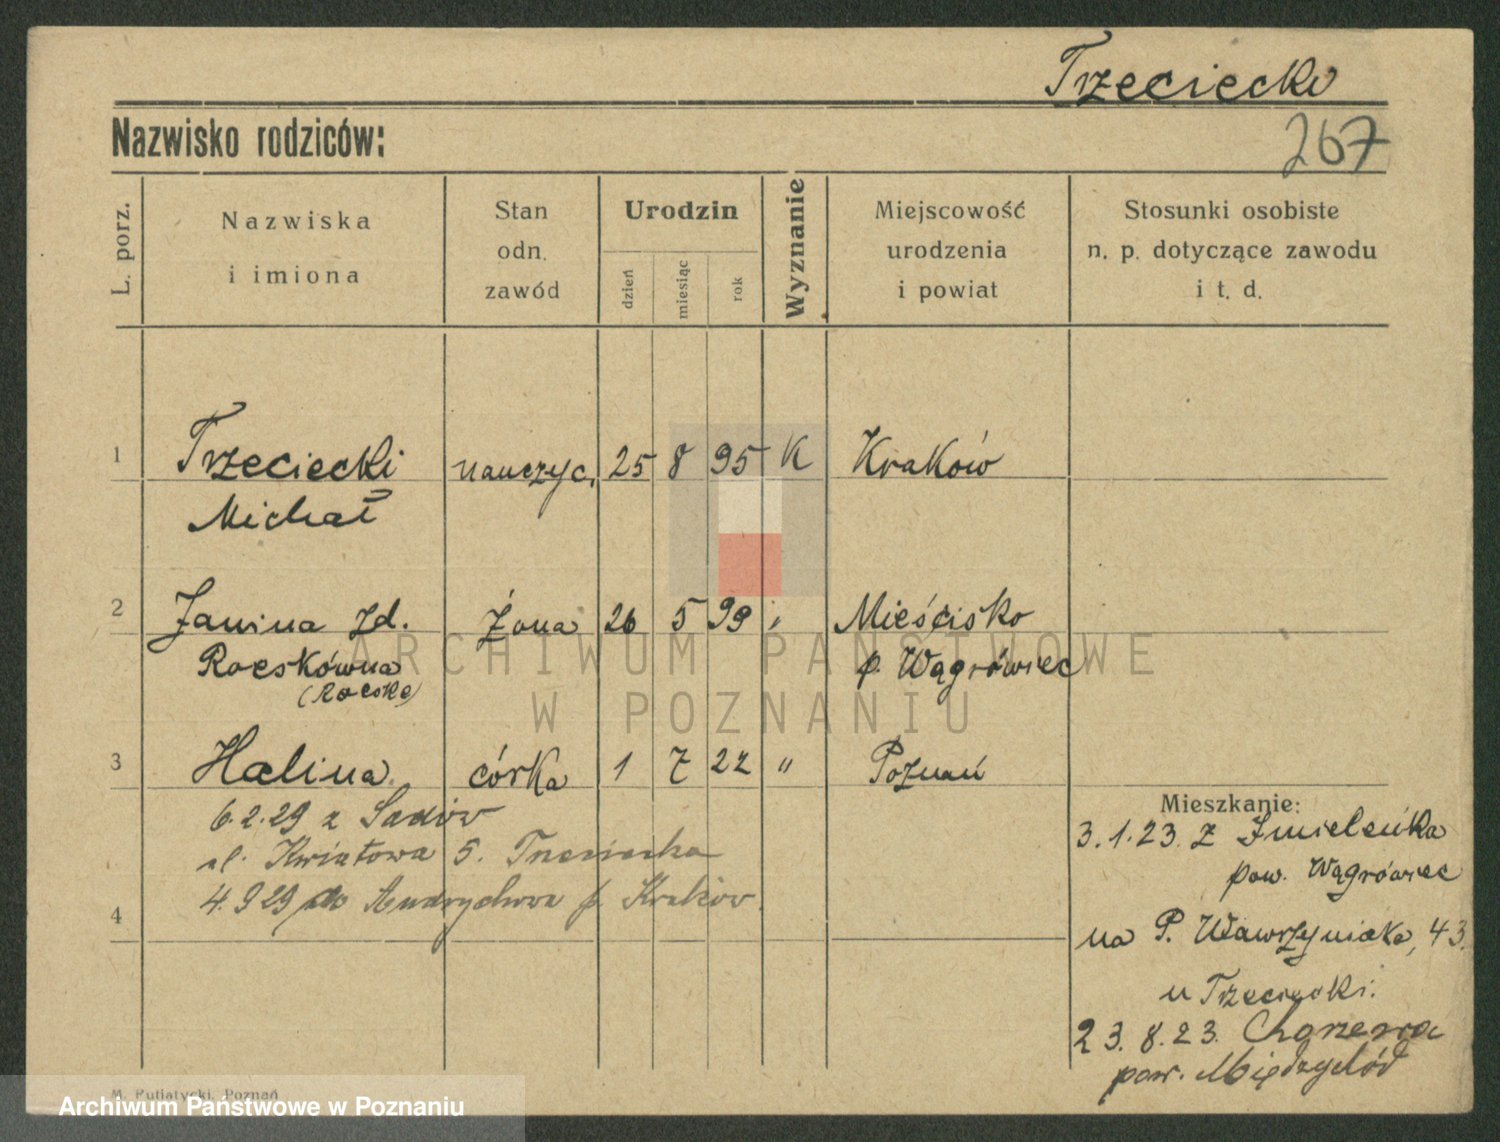 Trzeciecki
Nazwisko rodziców:
267
L. porz.
Nazwiska
i imiona
Stan
odn.
zawód
Urodzin
dzień
miesiąc
rok
Wyznanie
Miejscowość
urodzenia
i powiat
Stosunki osobiste
n. p. dotyczące zawodu
i t. d.
1 Trzeciecki nauczyc. 25 8 95 K Kraków
Michał
2 Janina zd. Żona 26 5 99 " Mieścisko
Roeskówna p. Wągrówiec
(Roeske)
3 Halina córka 1 7 22 " Poznań
6.2.29 z Sadów
ul. Kwiatowa 5. Trzeciecka
4.9 29 do Andrychowa p. Kraków.
4
Mieszkanie:
3.1.23. z
pow. Wągrówiec
na P. Wawrzyniaka, 43.
u Trzeciecki.
23.8.23.
pow. Międzychód
M. Putiatycki, Poznań
ARCHIWUM PAŃSTWOWE
W POZNANIU
Archiwum Państwowe w Poznaniu